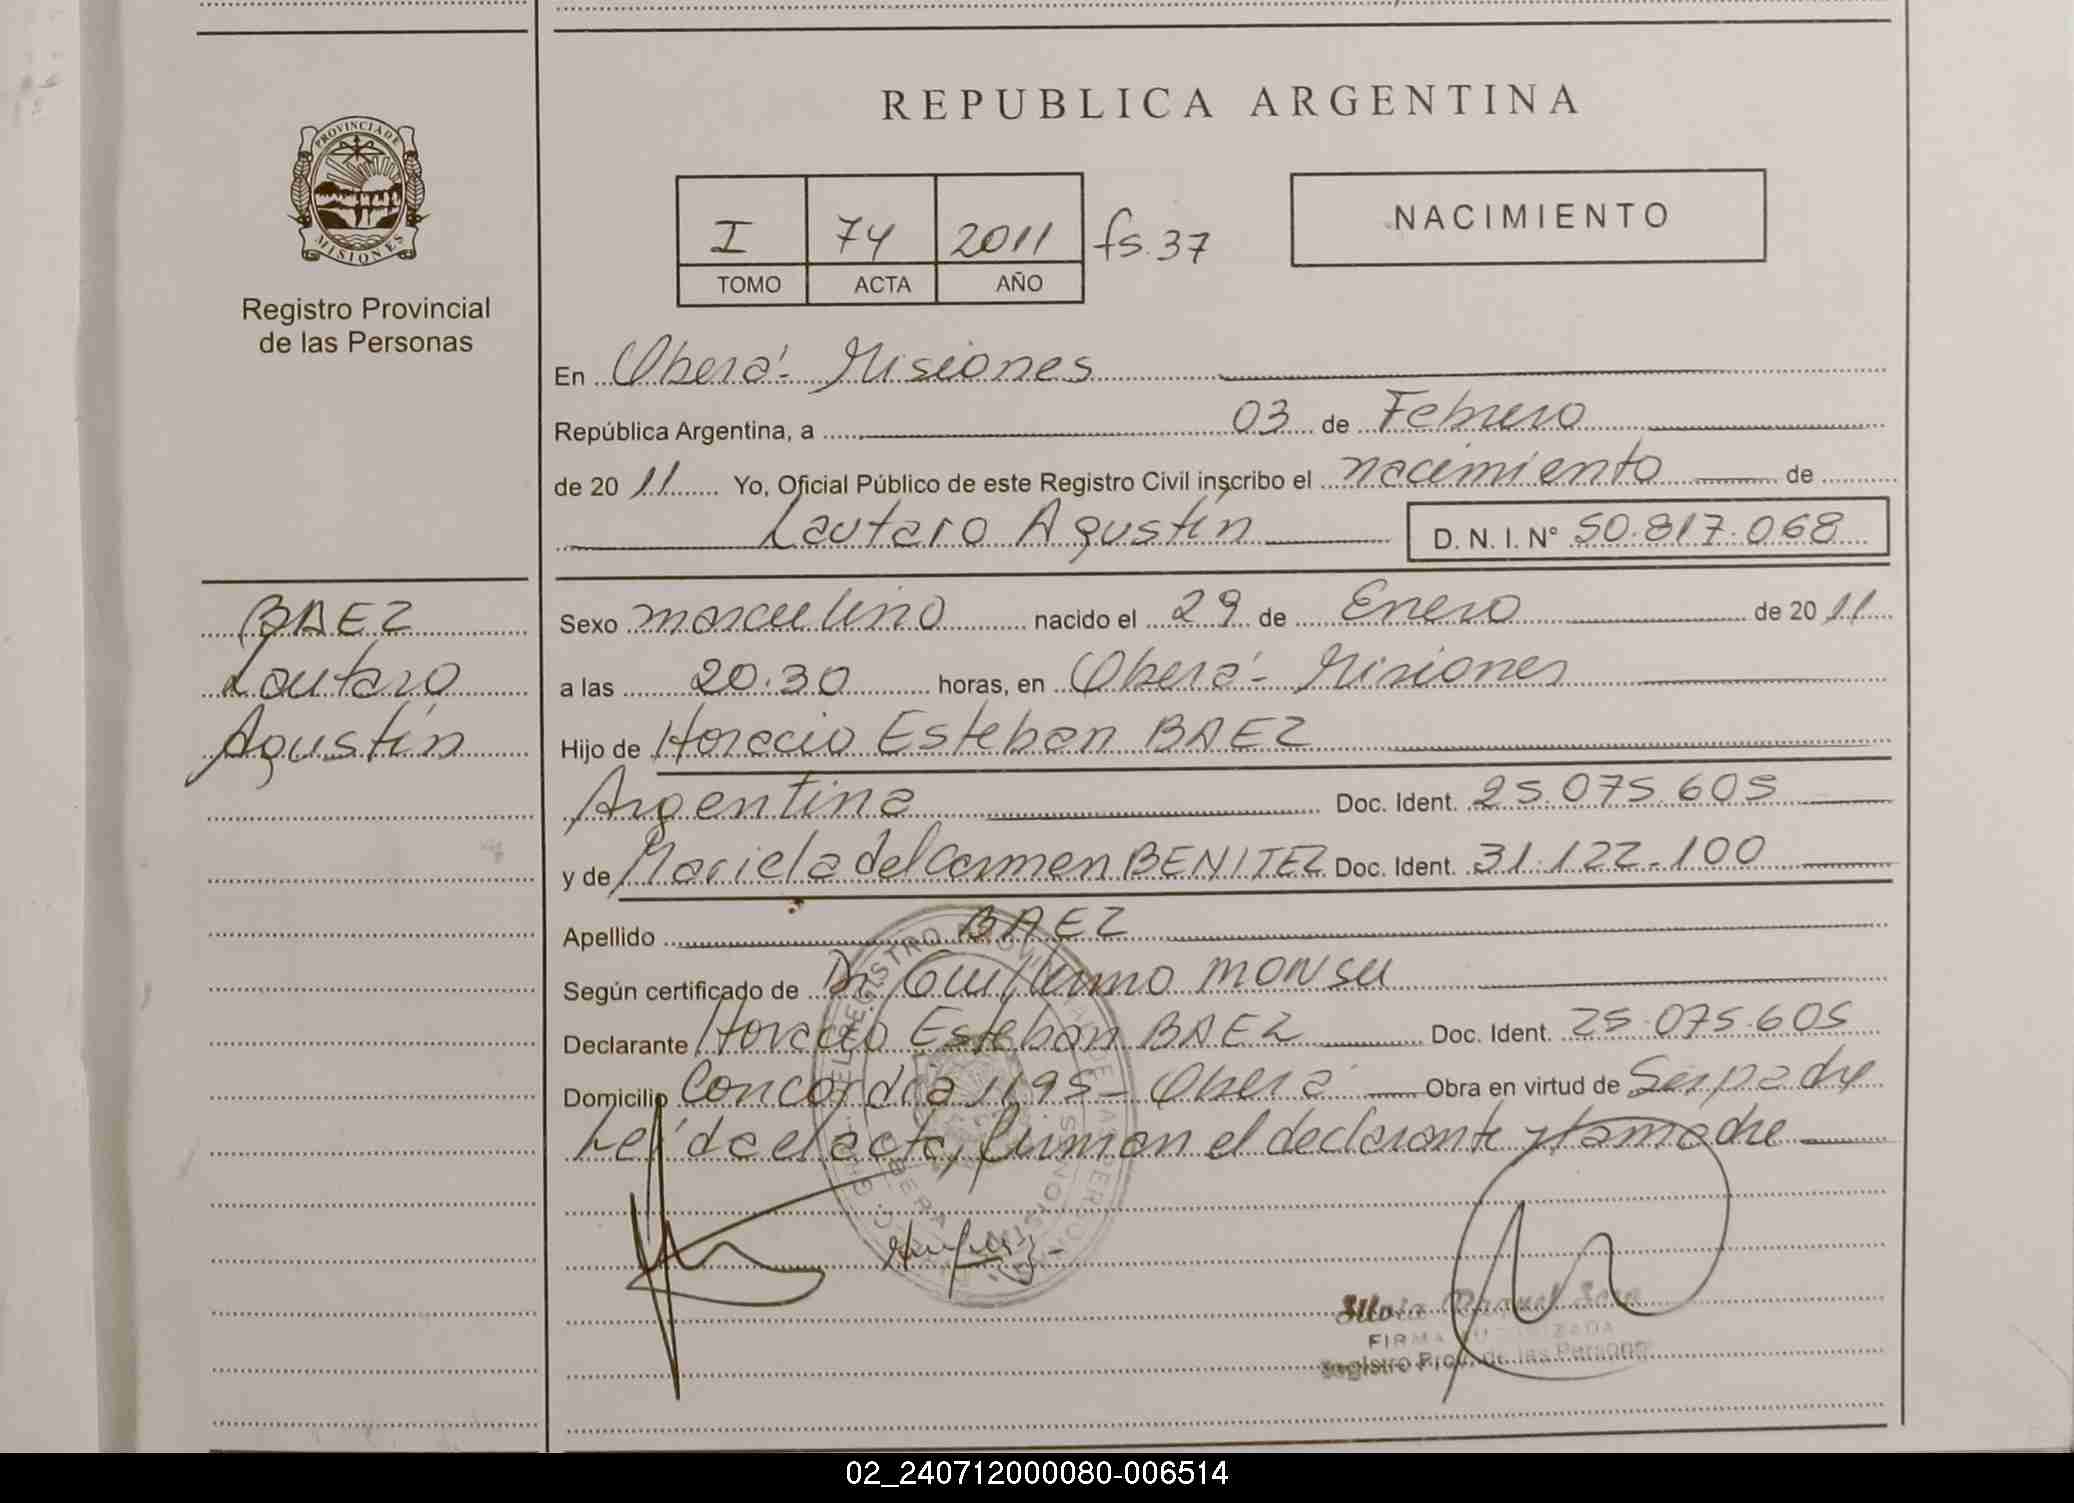 REPUBLICA ARGENTINA
PROVINCIA DE
MISIONES
Registro Provincial
de las Personas
I 74 2011 fs.37
TOMO ACTA AÑO
NACIMIENTO
En Oberá - Misiones
República Argentina, a 03 de Febrero
de 20 11 Yo, Oficial Público de este Registro Civil inscribo el nacimiento de
Lautaro Agustín D. N. I. Nº 50.817.068
BAEZ
Lautaro
Agustín
Sexo masculino nacido el 29 de Enero de 20 11
a las 20.30 horas, en Oberá - Misiones
Hijo de Horacio Esteban BAEZ
Argentina Doc. Ident. 25.075.605
y de Mariela del Carmen BENITEZ Doc. Ident. 31.122.100
Apellido BAEZ
Según certificado de Dr. Guillermo MONSU
Declarante Horacio Esteban BAEZ Doc. Ident. 25.075.605
Domicilio Concordia 1195 - Oberá Obra en virtud de Ser padre
Leída el acta, firman el declarante y la madre
Silvia Raquel
FIRMA AUTORIZADA
Registro Prov. de las Personas
02_240712000080-006514